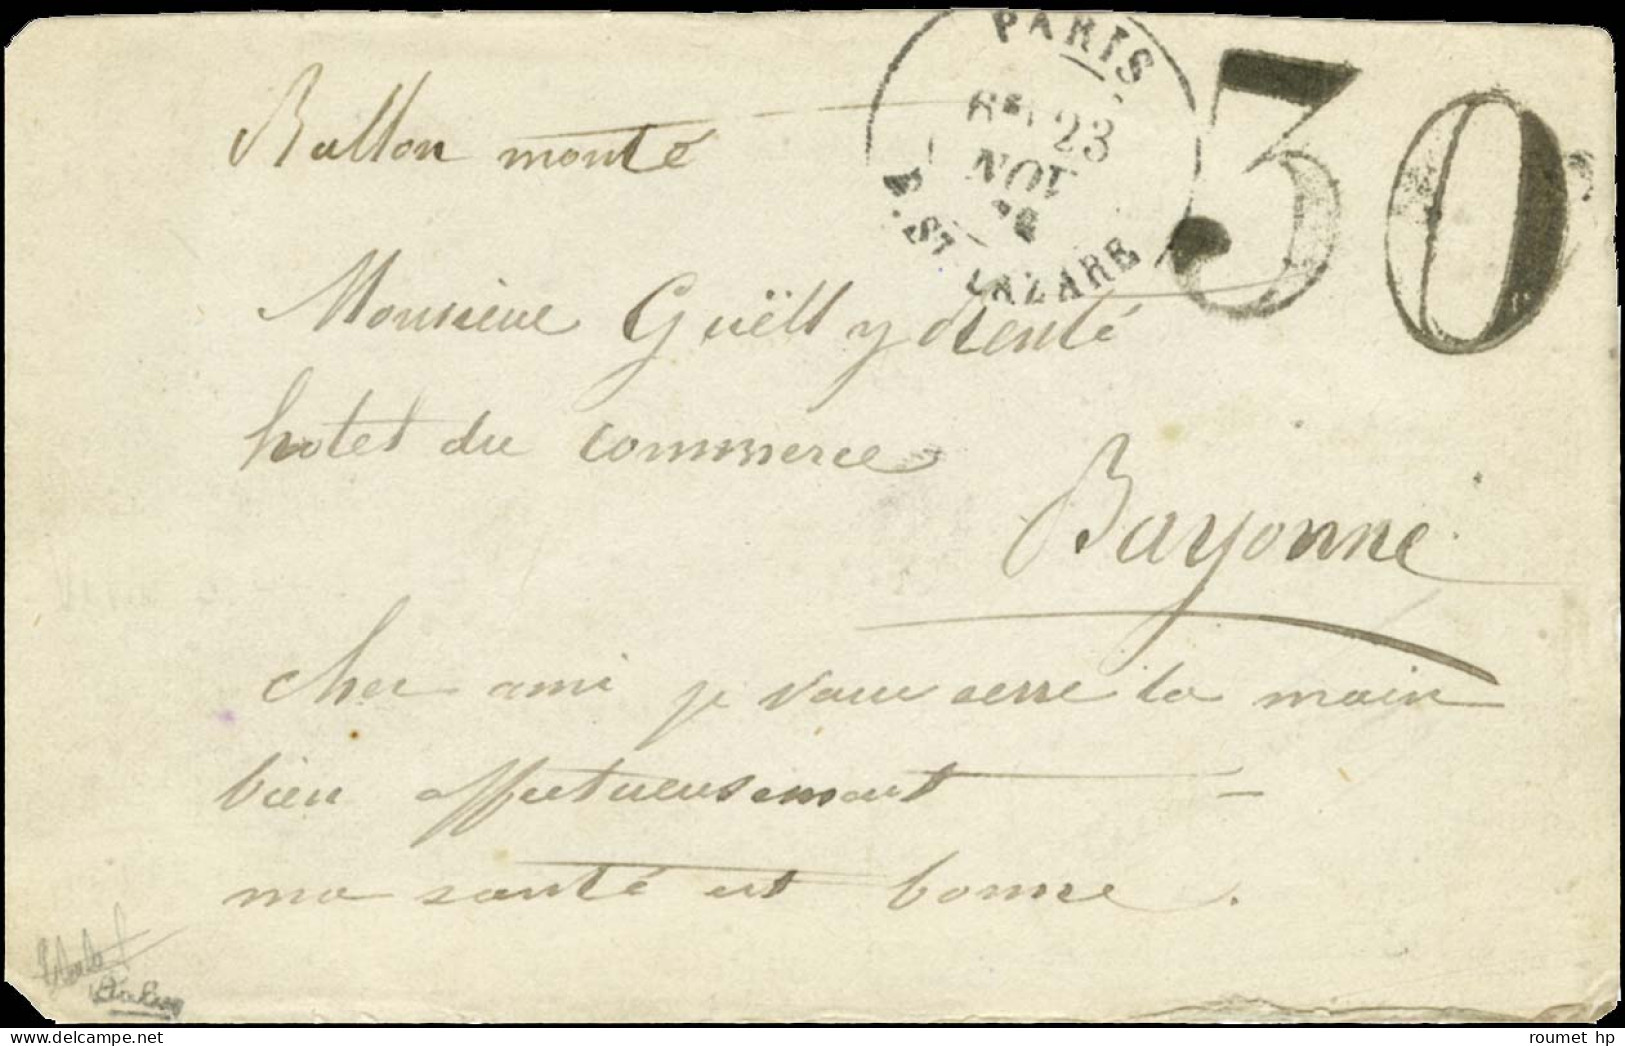 PARIS
6E 23
NOV
R. ST LAZARE
30
Ballon monté
Monsieur Guëll y Renté
hotel du commerce
Bayonne
cher ami je vous serre la main
bien affectueusement
ma santé est bonne.
roumet hp